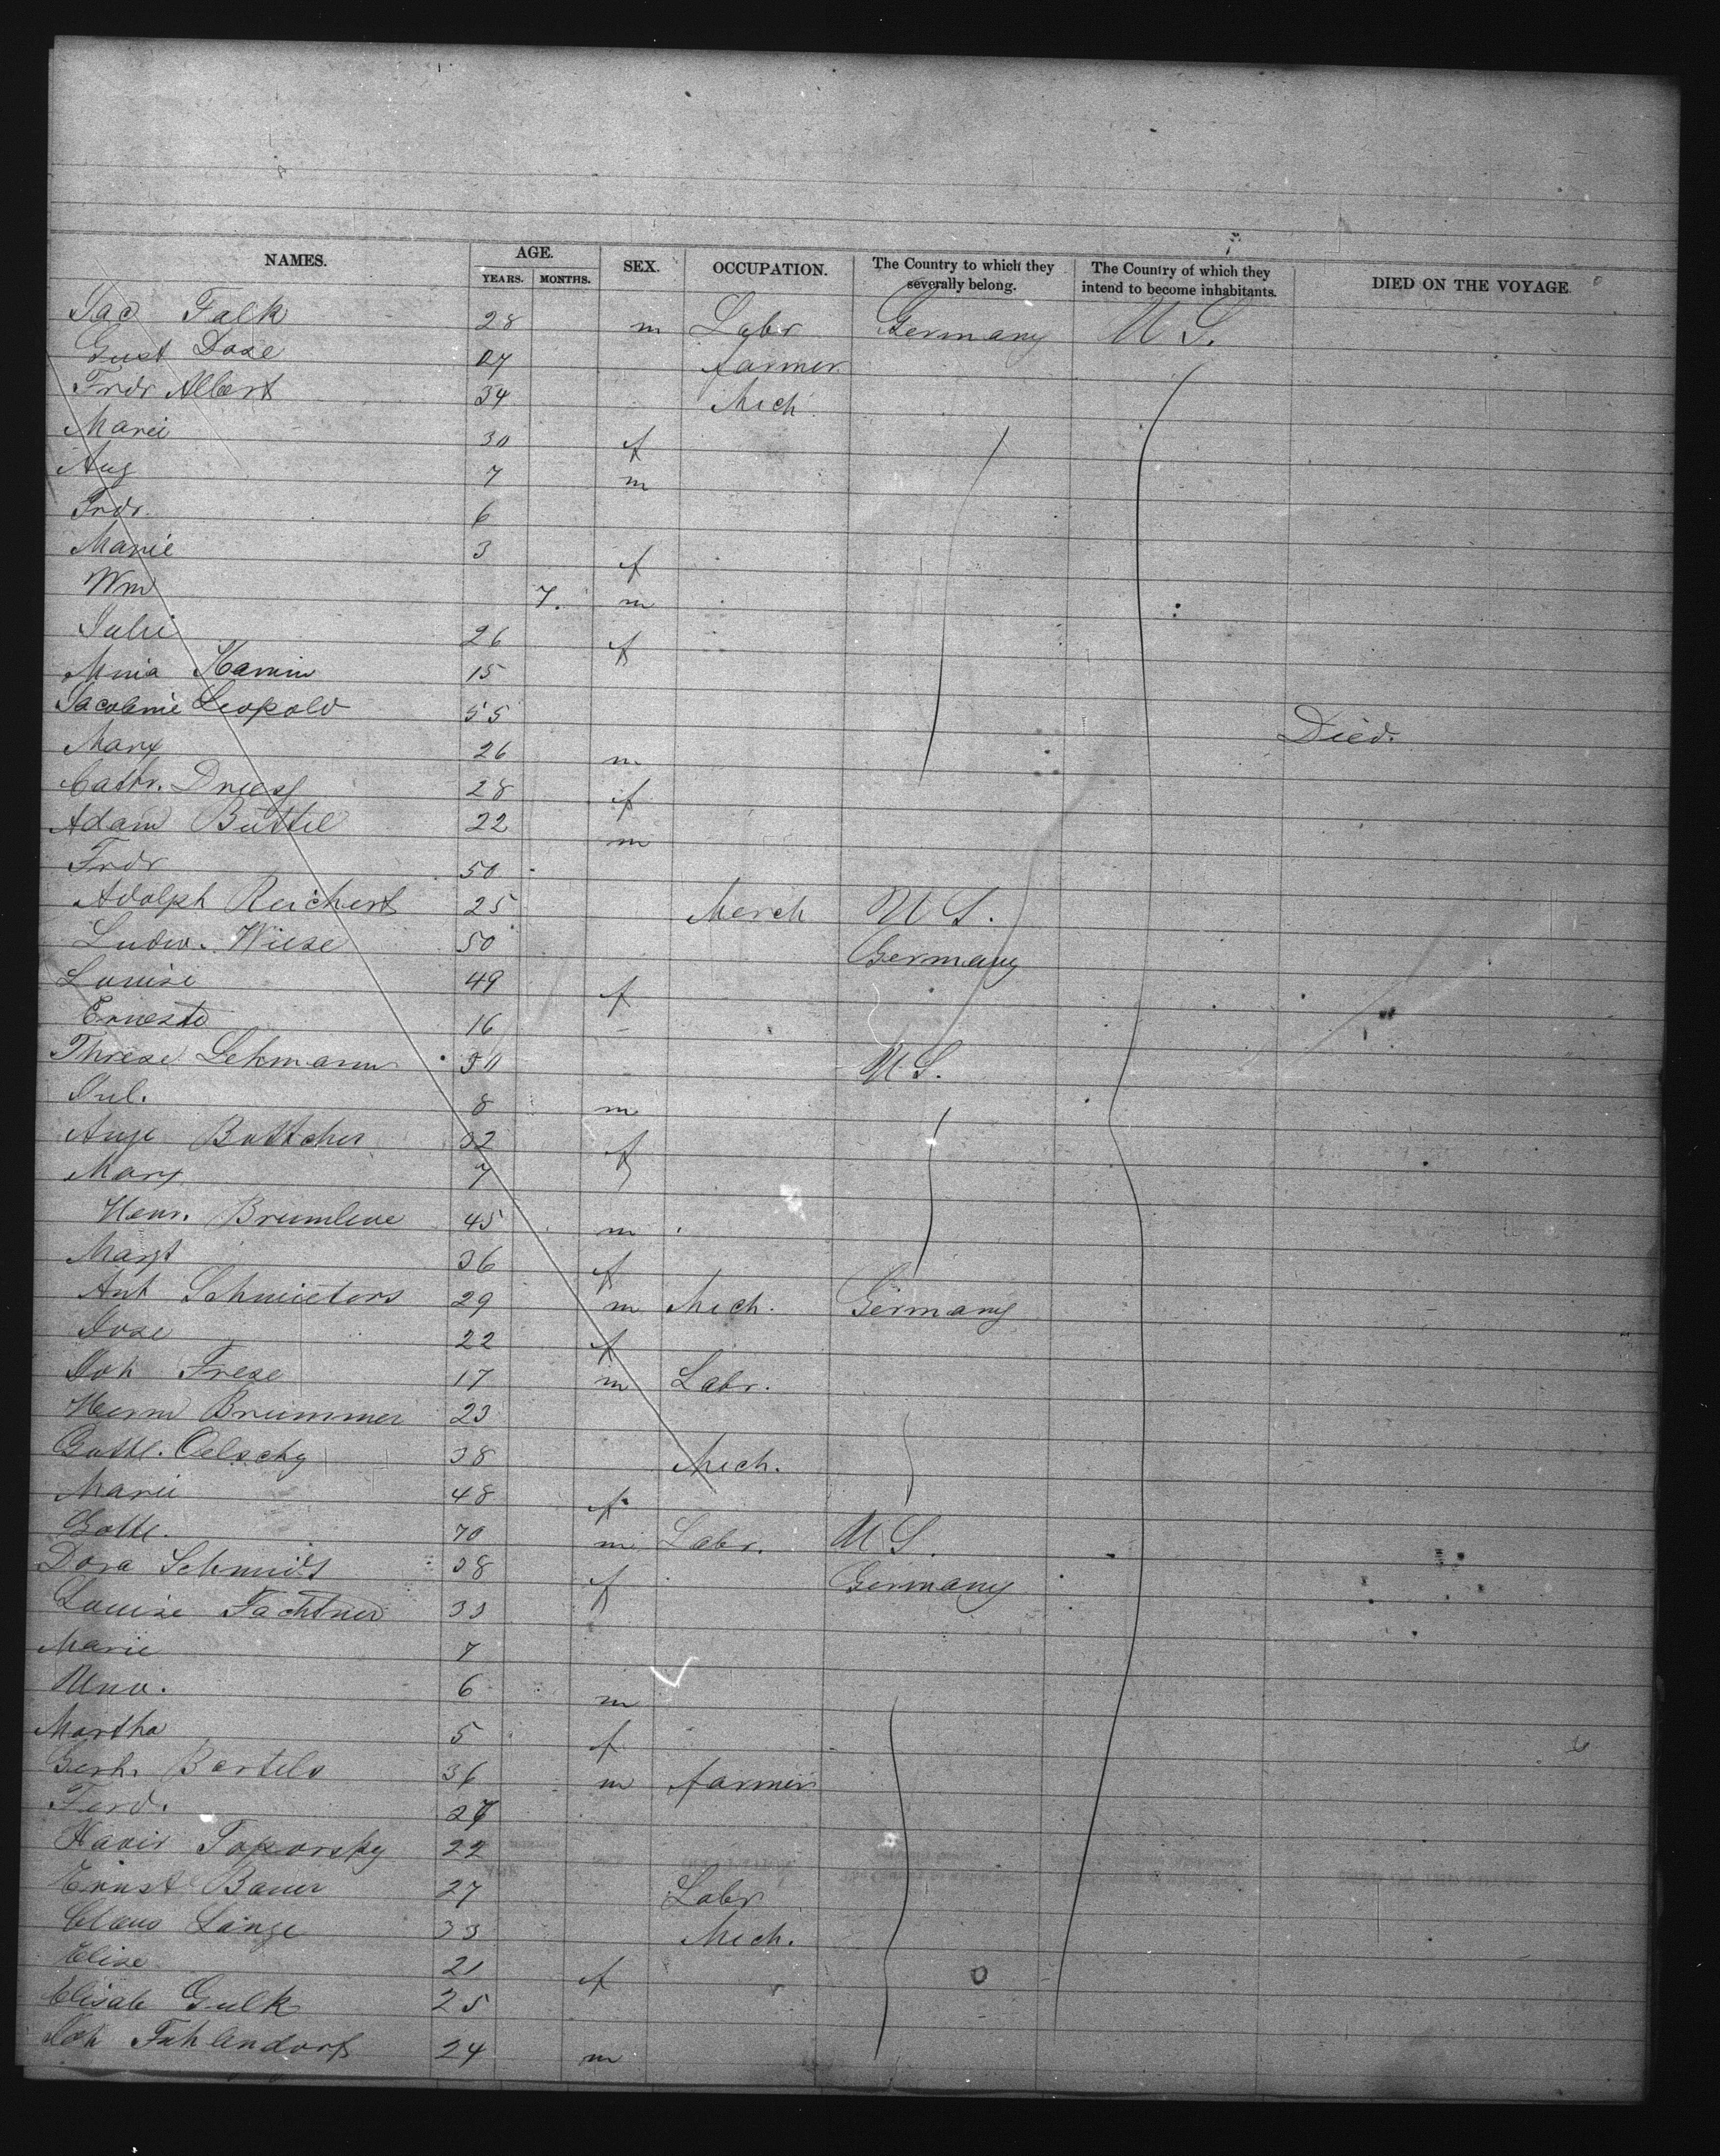 NAMES. AGE. YEARS. MONTHS. SEX. OCCUPATION. The Country to which they severally belong. The Country of which they intend to become inhabitants. DIED ON THE VOYAGE
Jac Falk 28 m Labr Germany U S.
Gust Dose 27 farmer
Frdr Albert 34 Mech
Marie 30 f
Aug 7 m
Frdr. 6
Marie 3 f
Wm 7. m
Julie 26 f
Mina Hamin 15
Jacobine Leopold 55 Died.
Marx 26 m
Cathr. Driess 28 f
Adam Büttel 22 m
Frdr 50
Adolph Reichert 25 Merch U S.
Ludw. Wiese 50 Germany
Louise 49 f
Ernest 16
Threse Lehmann 30 U S.
Jul. 8 m
Auge Bottcher 32 f
Marx 7
Henr. Brumleve 45 m
Margt 36 f
Ant Schmieters 29 m Mech. Germany
Jose 22 f
Joh Frese 17 m Labr.
Herm Brummer 23
Gottl. Oelschg 38 Mech.
Marie 48 f
Gottl. 70 m Labr. U S.
Dora Schmidt 38 f Germany
Louise Fachtner 33
Marie 7
6 m
Martha 5 f
Gerh. Bartels 36 m farmer
Ferd. 27
Xavir Toporsky 22
Ernst Bauer 27 Labr
Claus Lange 33 Mech.
Elise 21 f
Elisab Gulk 25
Joh Fuhlendorf 24 m